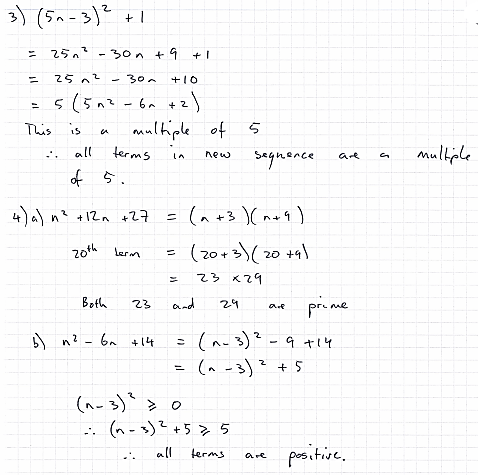 3) (5n-3)² +1
= 25n² - 30n + 9 +1
= 25n² - 30n +10
= 5(5n² - 6n +2)
This is a multiple of 5
∴ all terms in new sequence are a multiple
of 5.
4) a) n² +12n +27 = (n+3)(n+9)
20th term = (20+3)(20+9)
= 23 ×29
Both 23 and 29 are prime
b) n² - 6n +14 = (n-3)² - 9 +14
= (n-3)² + 5
(n-3)² ≥ 0
∴ (n-3)² +5 ≥ 5
∴ all terms are positive.